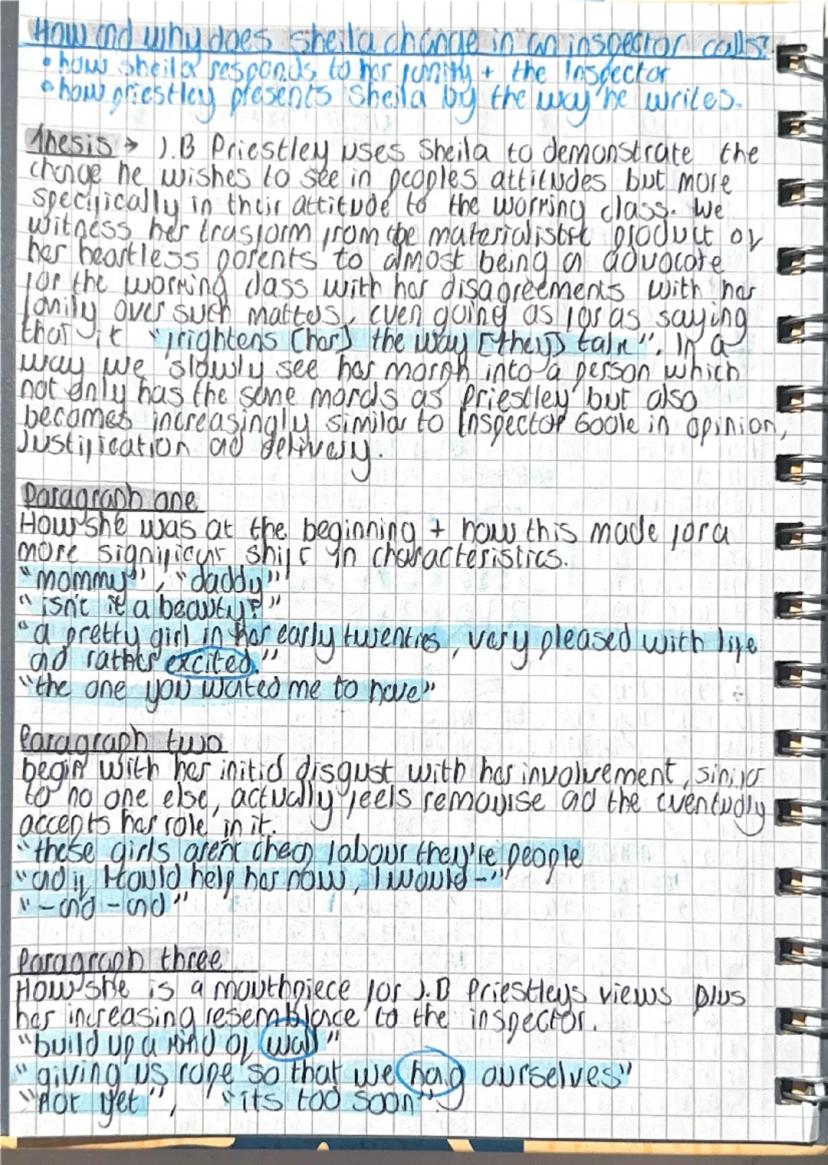 How and why does sheila change in "an inspector calls?"
• how sheila responds to her family + the Inspector
• how priestley presents Sheila by the way he writes.
Thesis → J.B Priestley uses Sheila to demonstrate the
change he wishes to see in peoples attitudes but more
specifically in their attitude to the working class. We
witness her trasform from the materialistic product of
her heartless parents to almost being an advocate
for the working class with her disagreements with her
family over such matters, even going as far as saying
that it "frightens [her] the way [they] talk". In a
way we slowly see her morph into a person which
not only has the same morals as Priestley but also
becomes increasingly similar to Inspector Goole in opinion,
Justification and delivery.
Paragraph one
How she was at the beginning + how this made for a
more significant shift in characteristics.
"mommy", "daddy"
"isn't it a beauty?"
"a pretty girl in her early twenties, very pleased with life
and rather excited."
"the one you wanted me to have"
Paragraph two
begin with her initial disgust with her involvement, similar
to no one else, actually feels remourse and the eventually
accepts her role in it.
"these girls arent cheap labour they're people
"and if I could help her now, I would-"
"-and -and"
Paragraph three
How she is a mouthpiece for J.B Priestleys views plus
her increasing resemblance to the inspector.
"build up a kind of wall"
"giving us rope so that we hang ourselves"
"not yet", "its too soon"